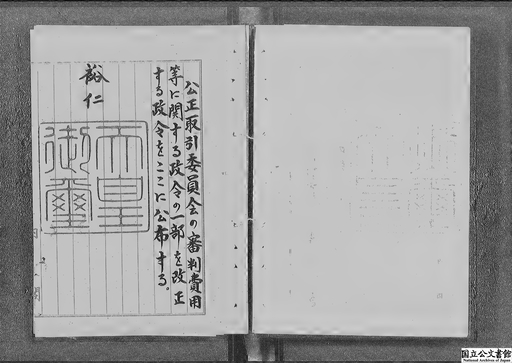 公正取引委員会の審判費用
等に関する政令の一部を改正
する政令をここに公布する。
裕仁
天皇
御璽
国立公文書館
National Archives of Japan